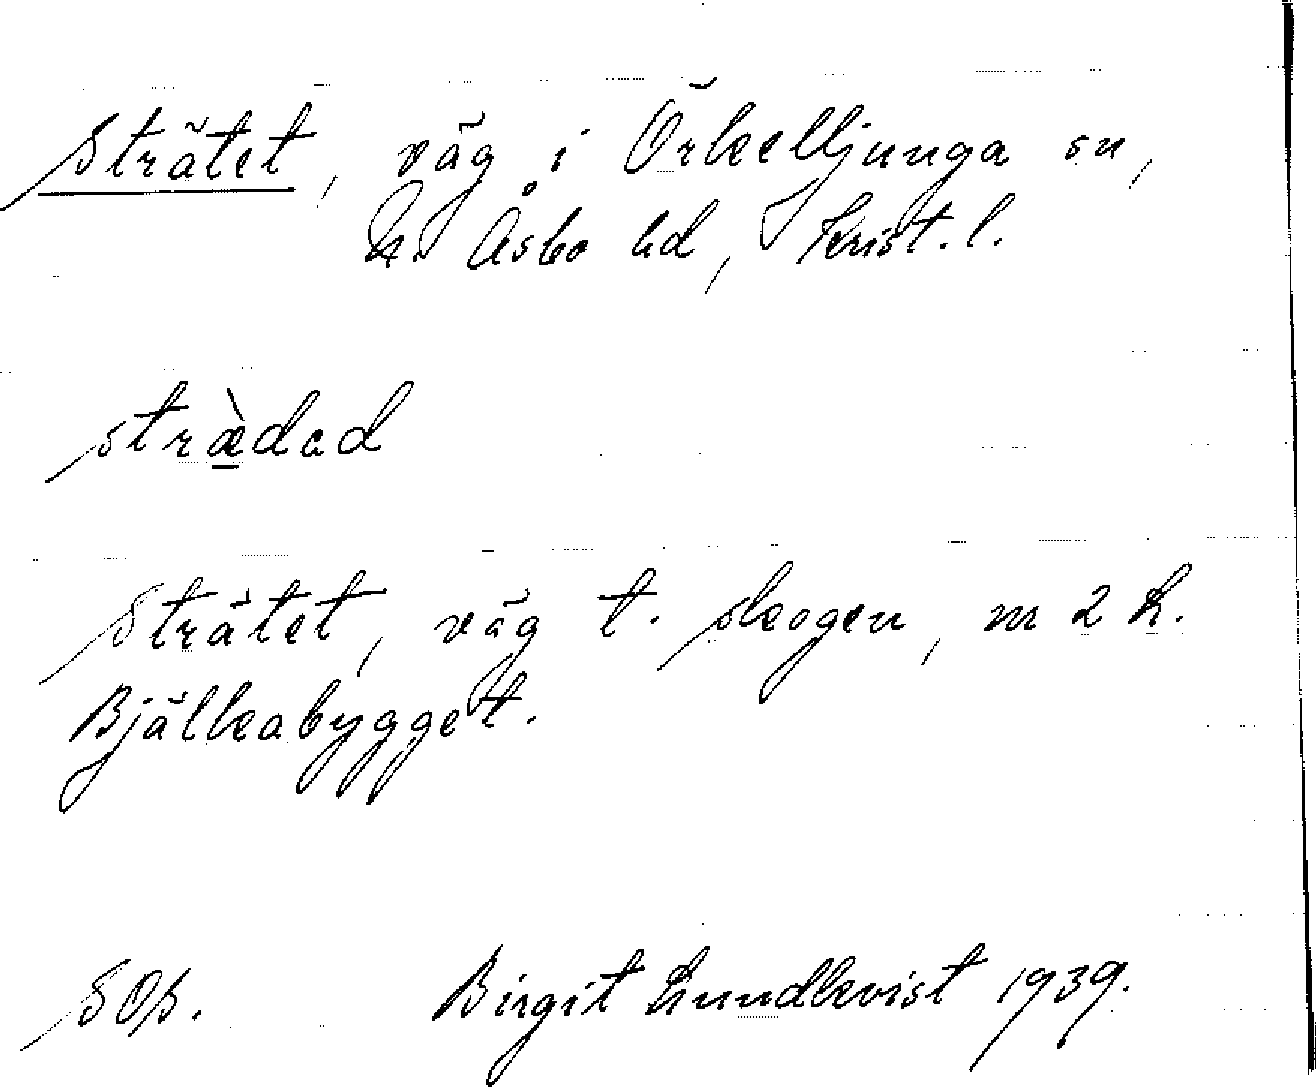 Strätet, väg i Örkelljunga sn,
N. Åsbo hd, Krist. l.
stræ̀dad
Strätet, väg t. skogen, m 2 k.
Bjälkabygget.
SOp. Birgit Lundkvist 1939.